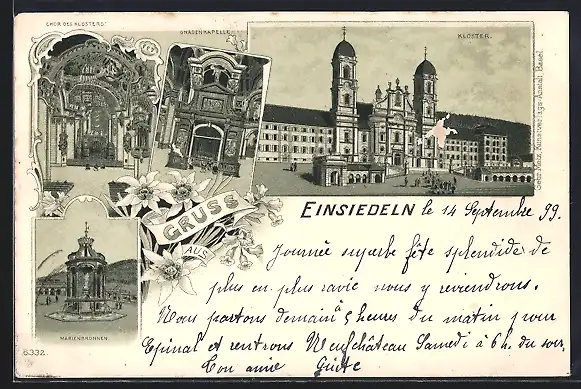 CHOR DES KLOSTERS.
GNADENKAPELLE.
KLOSTER.
Gebr. Metz, Kunstverlags-Anstalt, Basel.
GRUSS
AUS
EINSIEDELN le 14 Septembre 99.
Journée superbe fête splendide de
plus en plus ravie nous y reviendrons.
Nous partons demain à 5 heures du matin pour
Epinal et rentrons Neufchâteau Samedi à 6 h. du soir.
Ton amie
MARIENBRUNNEN.
6332.